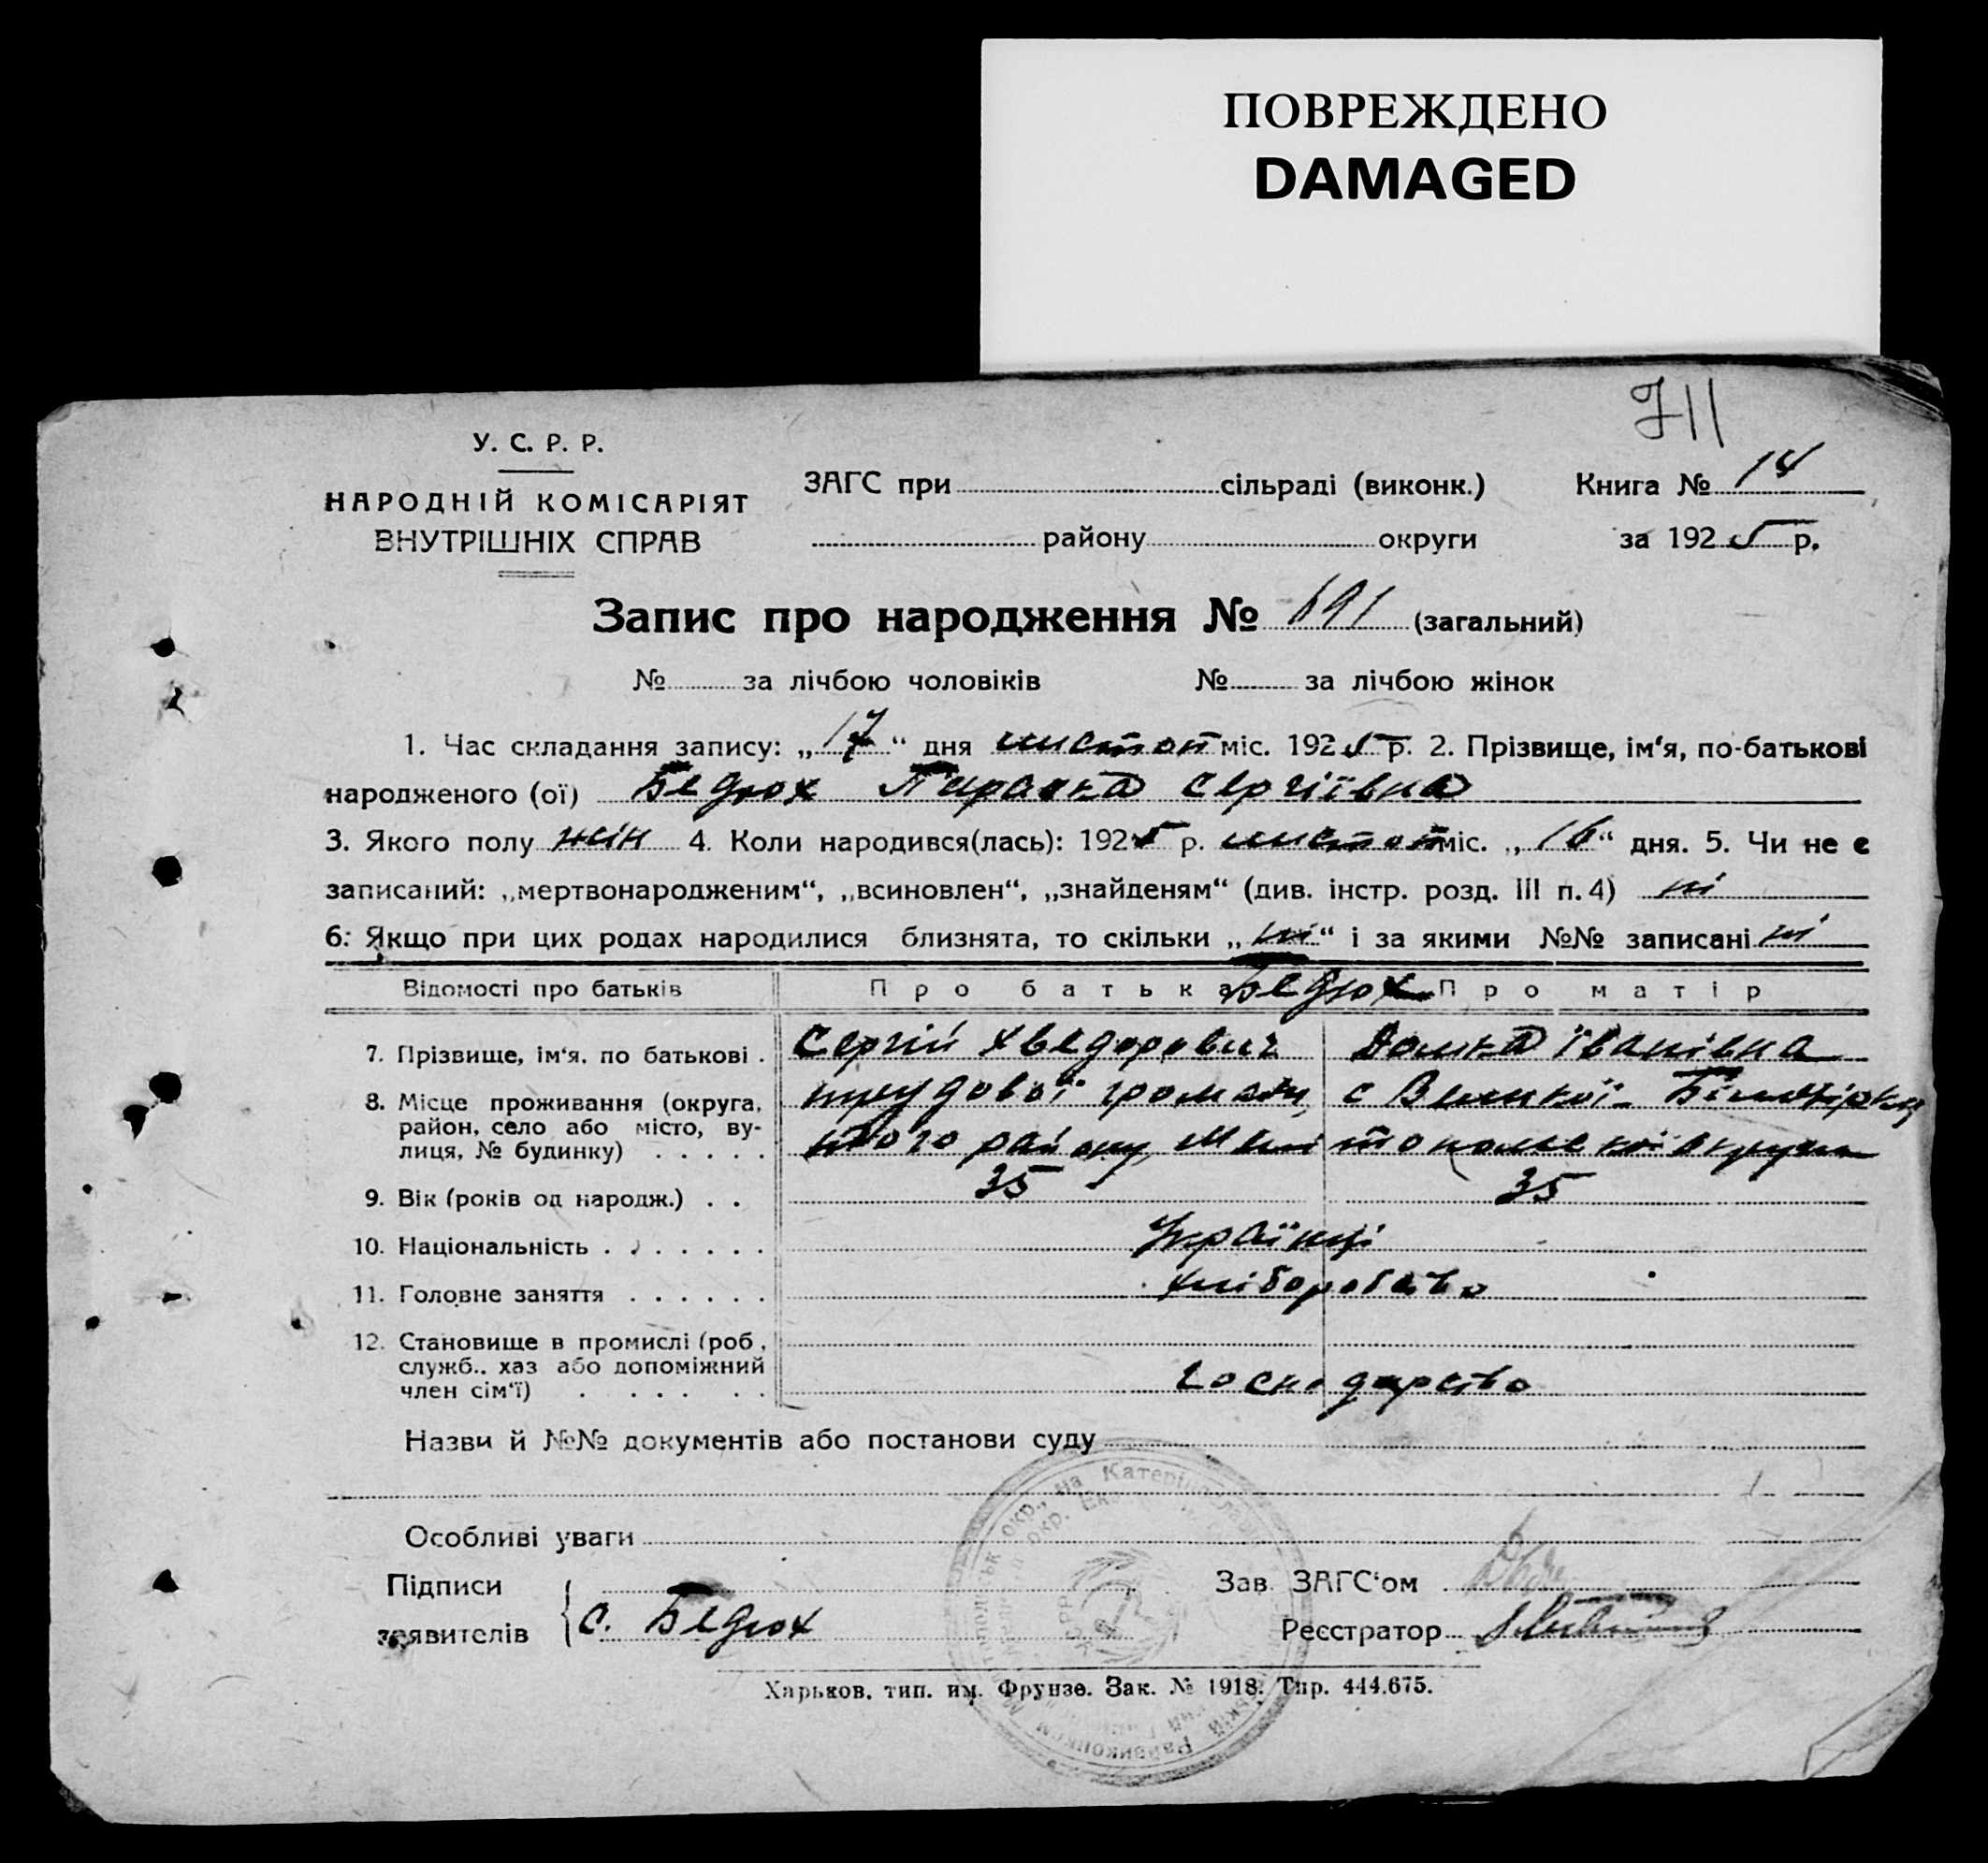 ПОВРЕЖДЕНО
DAMAGED
711
У. С. Р. Р.
НАРОДНІЙ КОМІСАРІЯТ
ВНУТРІШНІХ СПРАВ
ЗАГС при сільраді (виконк.)
району округи
Книга № 14
за 1925 р.
Запис про народження № 691 (загальний)
№ за лічбою чоловіків № за лічбою жінок
1. Час складання запису: „17“ дня листоп міс. 1925 р. 2. Прізвище, ім‘я, по-батькові
народженого (ої) Бедюх Параска Сергіївна
3. Якого полу жін 4. Коли народився(лась): 1925 р. листоп міс. „16“ дня. 5. Чи не є
записаний: „мертвонародженим“, „всиновлен“, „знайденям“ (див. інстр. розд. III п. 4) ні
6. Якщо при цих родах народилися близнята, то скільки „ні“ і за якими №№ записані ні
Відомості про батьків Про батька Бедюх Про матір
7. Прізвище, ім‘я, по батькові . Сергій Хведорович Домка Іванівна
8. Місце проживання (округа, трудової громади с Великої Білозірки
район, село або місто, ву- того району, Мелітопольської округи
лиця, № будинку) . . . . .
9. Вік (років од народж.) . . 35 35
10. Національність . . . . . . . Українці
11. Головне заняття . . . . . . хліборобство
12. Становище в промислі (роб.,
служб., хаз або допоміжний
член сім‘ї) . . . . . . Господарство
Назви й №№ документів або постанови суду
Особливі уваги
Підписи
заявителів С. Бедюх
Зав. ЗАГС‘ом
Реєстратор
Харьков, тип. им. Фрунзе. Зак. № 1918. Тир. 444.675.